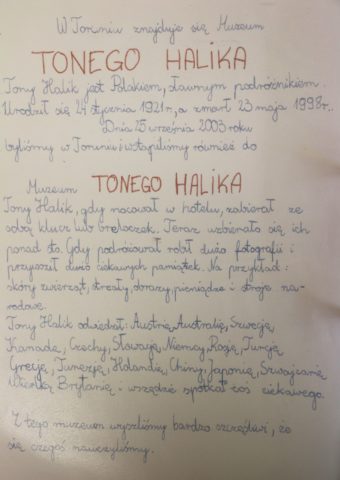 W Toruniu znajduje się Muzeum
TONEGO HALIKA
Tony Halik jest Polakiem, sławnym podróżnikiem.
Urodził się 24 stycznia 1921r., a zmarł 23 maja 1998r..
Dnia 25 września 2003 roku
byliśmy w Toruniu i wstąpiliśmy również do
Muzeum TONEGO HALIKA
Tony Halik, gdy nocował w hotelu, zabierał ze
sobą klucz lub breloczek. Teraz uzbierało się ich
ponad sto. Gdy podróżował robił dużo fotografii i
przywoził dużo ciekawych pamiątek. Na przykład:
skóry zwierząt, obrazy, pieniądze i stroje na-
rodowe.
Tony Halik odwiedzał: Austrię, Australię, Szwecję,
Kanadę, Czechy, Słowację, Niemcy, Rosję, Turcję
Grecję, Tunezję, Holandię, Chiny, Japonię, Szwajcarię
Wielką Brytanię i wszędzie spotkał coś ciekawego.
Z tego muzeum wyszliśmy bardzo szczęśliwi, że
się czegoś nauczyliśmy.